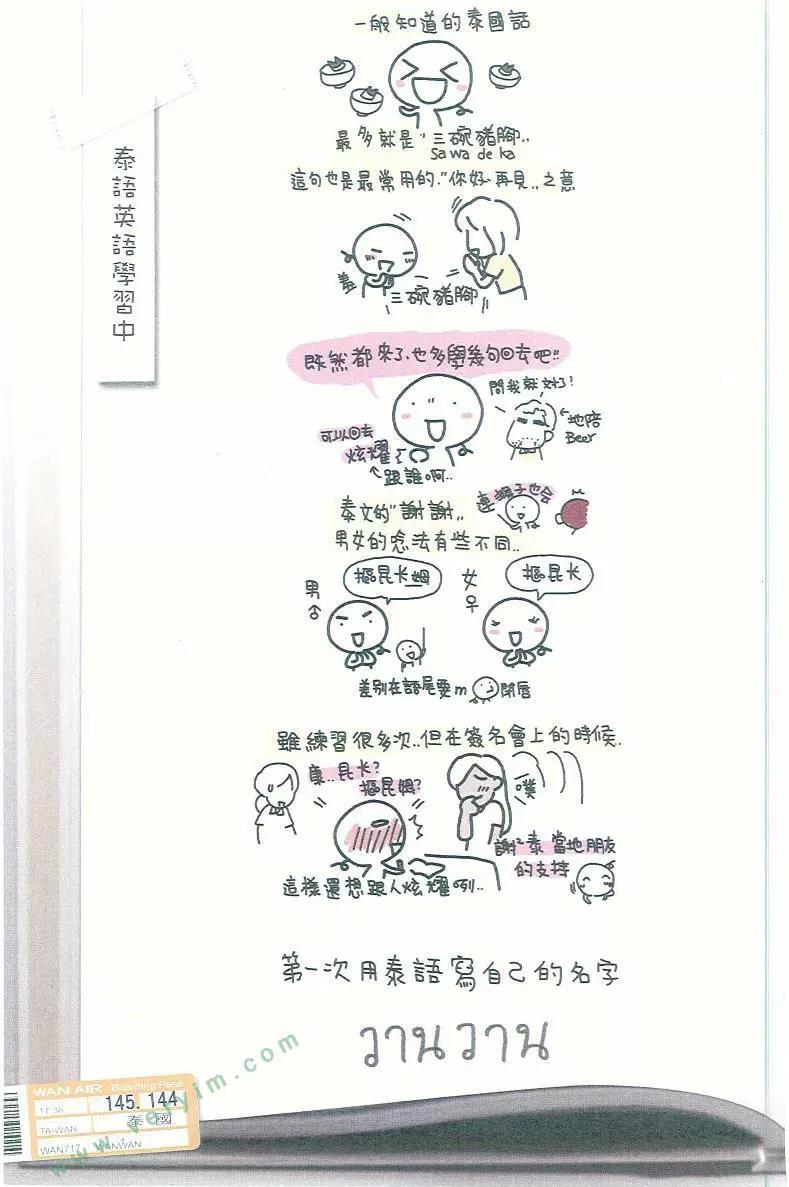 一般知道的泰國話
最多就是"三碗豬腳..
sawadeka
這句也是最常用的."你好.再見..之意
羞
三碗豬腳
泰語英語學習中
既然都來了、也多學幾句回去吧!!
問我就好了!
地陪
Beer
可以回去
炫耀
跟誰啊..
連猴子也会
泰文的"謝謝„
男女的唸法有些不同..
摳昆卡姆
摳昆卡
男
女
差別在語尾要m
閉唇
雖練習很多次..但在簽名會上的時候.
康..昆卡?
摳昆姆?
噗
謝²泰當地朋友
的支持
這樣還想跟人炫耀咧..
第一次用泰語寫自己的名字
วานวาน
WAN AIR Boarding Pass
17:38
145. 144
TAIWAN
泰國
WAN717 WANWAN
www.veryim.com